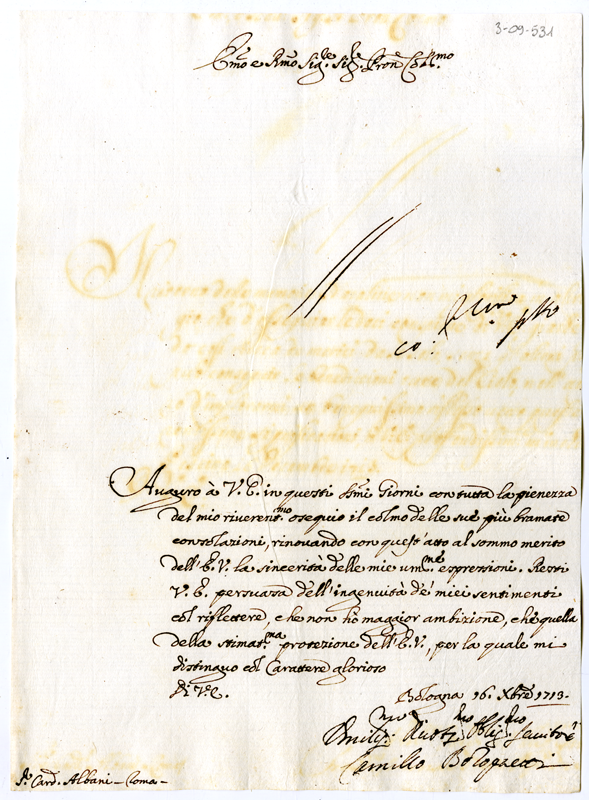 3-09-531
Emo e Rmo Sig.re Sig.re Pron Col.mo
Auguro à V. E. in questi SSmi Giorni con tutta la pienezza
del mio riverent.mo osequio il colmo delle sue più bramate
consolazioni, rinouando con quest'atto al sommo merito
dell'E.V. la sincerità delle mie um.me espressioni. Resti
V. E. persuasa dell'ingenuità de' miei sentimenti
col riflettere, che non hò maggior ambizione, che quella
della stimat.ma protezione dell'E.V., per la quale mi
distinguo col Carattere glorioso
Di V.E.
Bologna 16. Xbre 1713.
Umiliss.mo Diuot.mo Oblig.mo Seruitore
Camillo Bolognetti
Sr. Card. Albani - Roma -